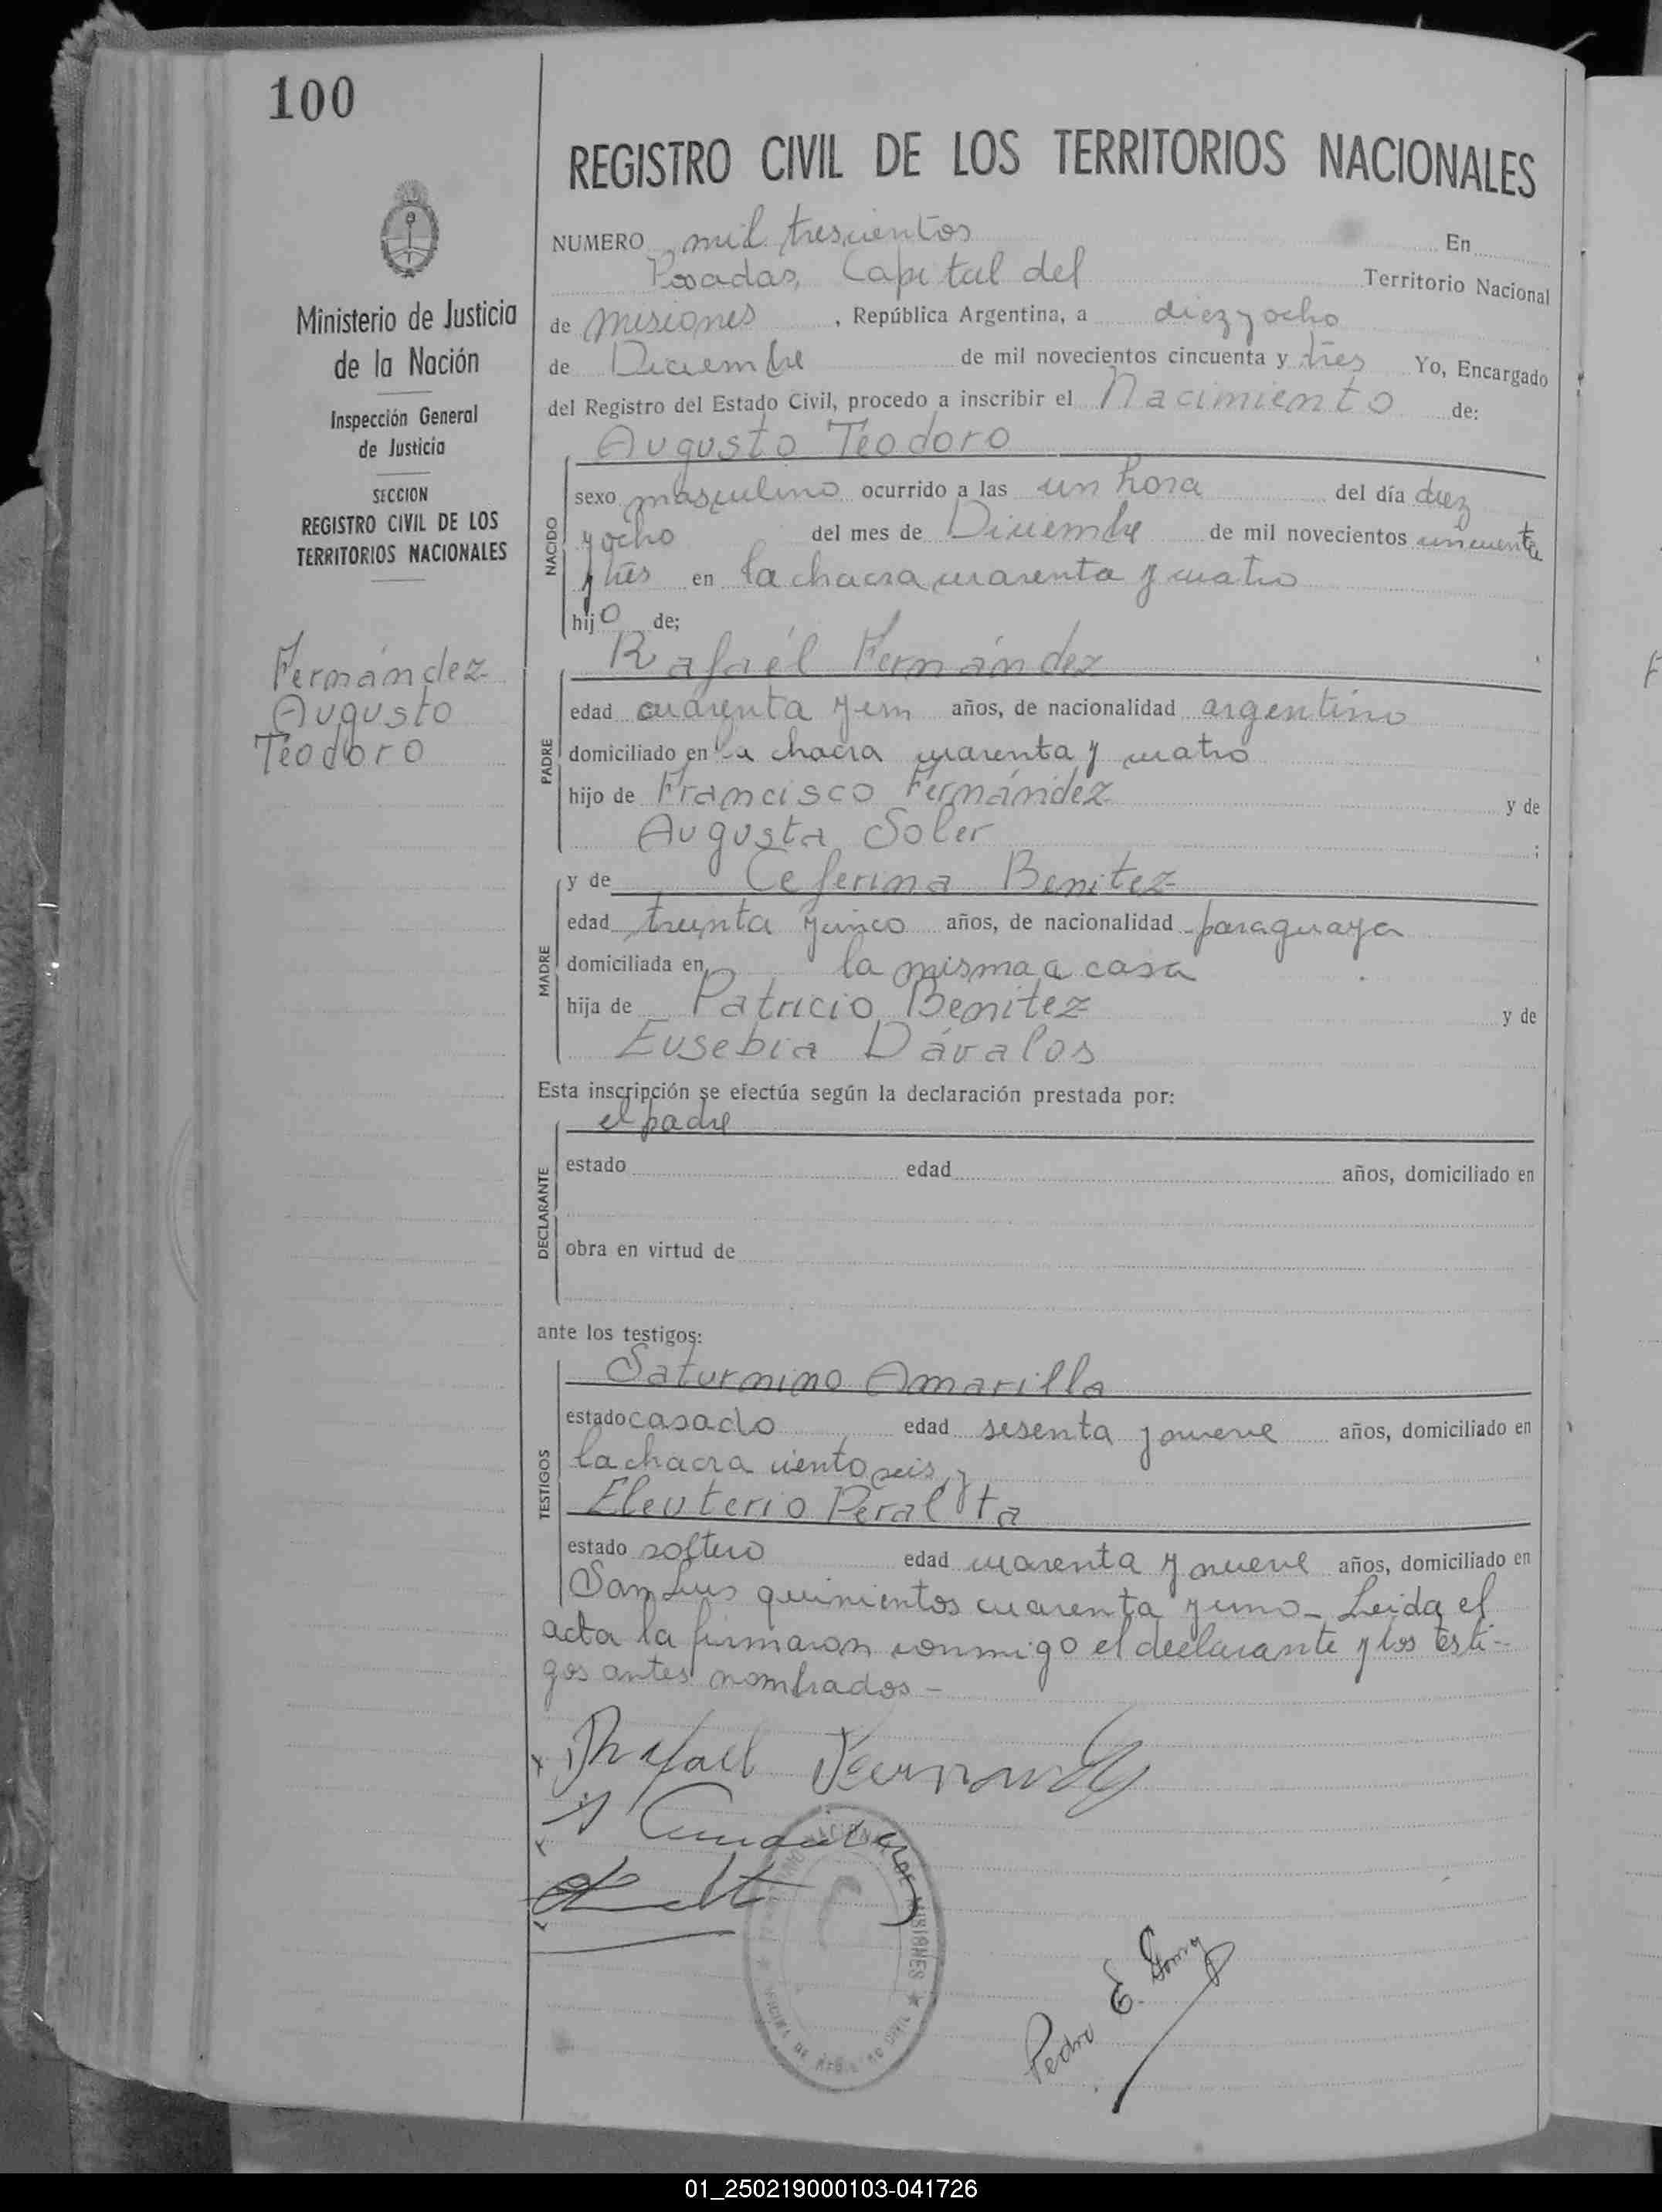 100
REGISTRO CIVIL DE LOS TERRITORIOS NACIONALES
Ministerio de Justicia
de la Nación
Inspección General
de Justicia
SECCION
REGISTRO CIVIL DE LOS
TERRITORIOS NACIONALES
Fernández
Augusto
Teodoro
NUMERO mil trescientos En
Posadas, Capital del Territorio Nacional
de misiones, República Argentina, a diez y ocho
de Diciembre de mil novecientos cincuenta y tres Yo, Encargado
del Registro del Estado Civil, procedo a inscribir el Nacimiento de:
Augusto Teodoro
NACIDO
sexo masculino ocurrido a las un hora del día diez
y ocho del mes de Diciembre de mil novecientos cincuenta
y tres en la chacra cuarenta y cuatro
hijo de;
Rafaél Fernández
PADRE
edad cuarenta y un años, de nacionalidad argentino
domiciliado en la chacra cuarenta y cuatro
hijo de Francisco Fernández y de
Augusta Soler ;
MADRE
y de Ceferina Benitez
edad treinta y cinco años, de nacionalidad paraguaya
domiciliada en la misma a casa
hija de Patricio Benitez y de
Eusebia Dávalos
Esta inscripción se efectúa según la declaración prestada por:
el padre
DECLARANTE
estado edad años, domiciliado en
obra en virtud de
ante los testigos:
TESTIGOS
Saturnino Amarilla
estado casado edad sesenta y nueve años, domiciliado en
la chacra ciento seis, y
Eleuterio Peralta
estado soltero edad cuarenta y nueve años, domiciliado en
San Luis quinientos cuarenta y uno - Leida el
acta la firmaron conmigo el declarante y los testi-
gos antes nombrados -
Rafael Fernandez
Pedro E.
MISIONES
01_250219000103-041726